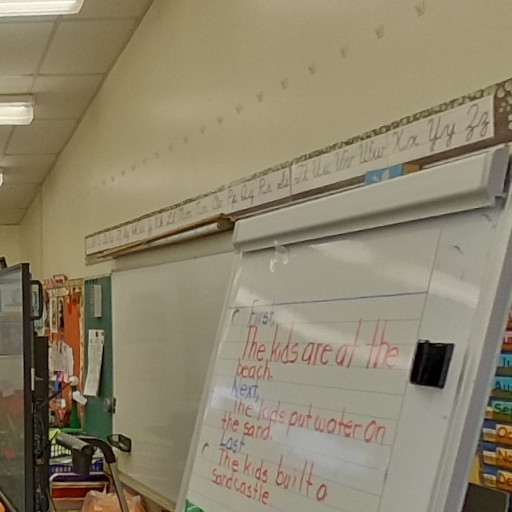 Pp Qq Rr Ss Tt Uu Vv Ww Xx Yy Zz
First,
The kids are at the
beach.
Next,
The kids put water on
the sand.
Last,
The kids built a
sandcastle.